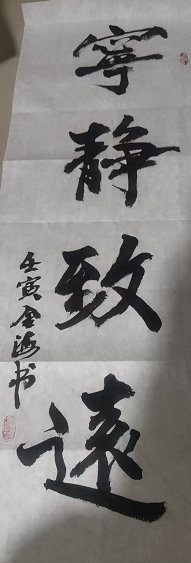 寧靜致遠
壬寅金海书